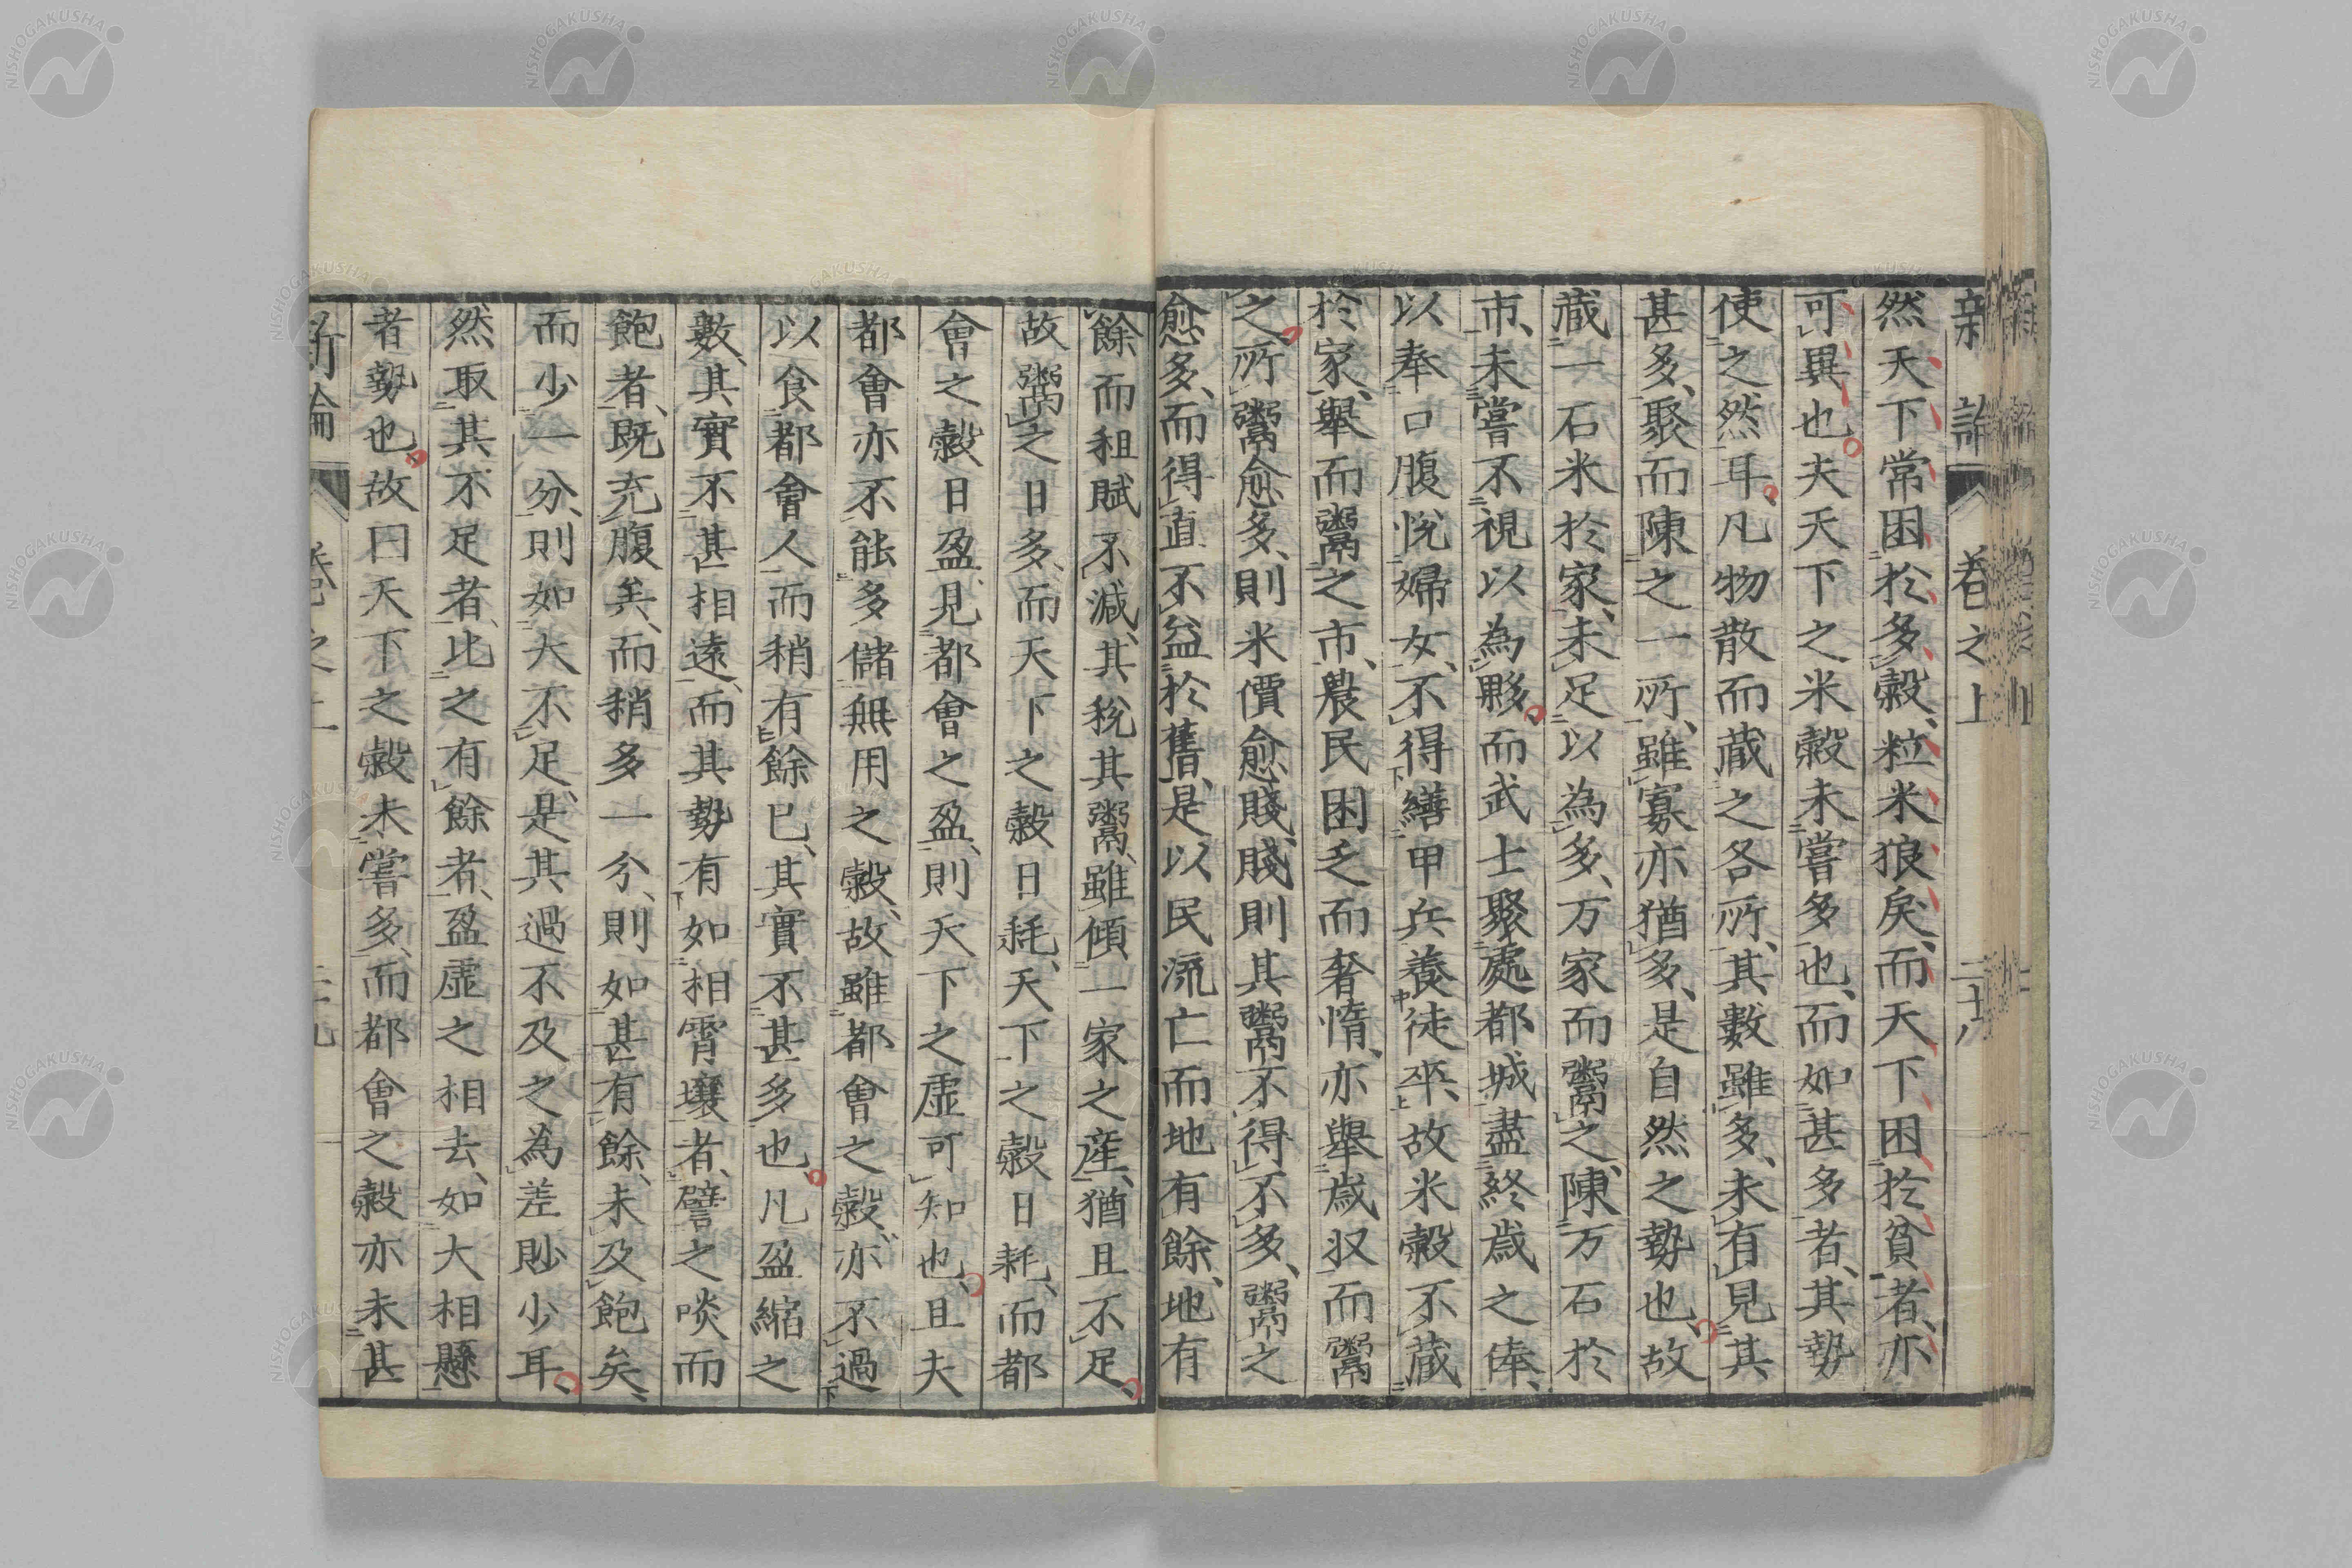 新論 卷之上 二十八
然天下常困於多穀粒米狼戾而天下困於貧者亦
可異也夫天下之米穀未嘗多也而如甚多者其勢
使之然耳凡物散而蔵之各所其數雖多未有見其
甚多聚而陳之一所雖寡亦猶多是自然之勢也故
蔵一石米於家未足以為多万家而鬻之陳万石於
市未嘗不視以為夥而武士聚處都城盡終歳之俸
以奉口腹悅婦女不得繕甲兵養徒卒故米穀不蔵
於家舉而鬻之市農民困乏而奢惰亦舉歳収而鬻
之所鬻愈多則米價愈賤賤則其鬻不得不多鬻之
愈多而得直不益於舊是以民流亡而地有餘地有
餘而租賦不減其稅其鬻雖傾一家之産猶且不足
故鬻之日多而天下之穀日耗天下之穀日耗而都
會之穀日盈見都會之盈則天下之虛可知也且夫
都會亦不能多儲無用之穀故雖都會之穀亦不過
以食都會人而稍有餘已其實不甚多也凡盈縮之
數其實不甚相遠而其勢有如相霄壤者譬之啖而
飽者既充腹矣而稍多一分則如甚有餘未及飽矣
而少一分則如大不足是其過不及之為差眇少耳
然取其不足者比之有餘者盈虛之相去如大相懸
者勢也故曰天下之穀未嘗多而都會之穀亦未甚
新論
NISHOGAKUSHA